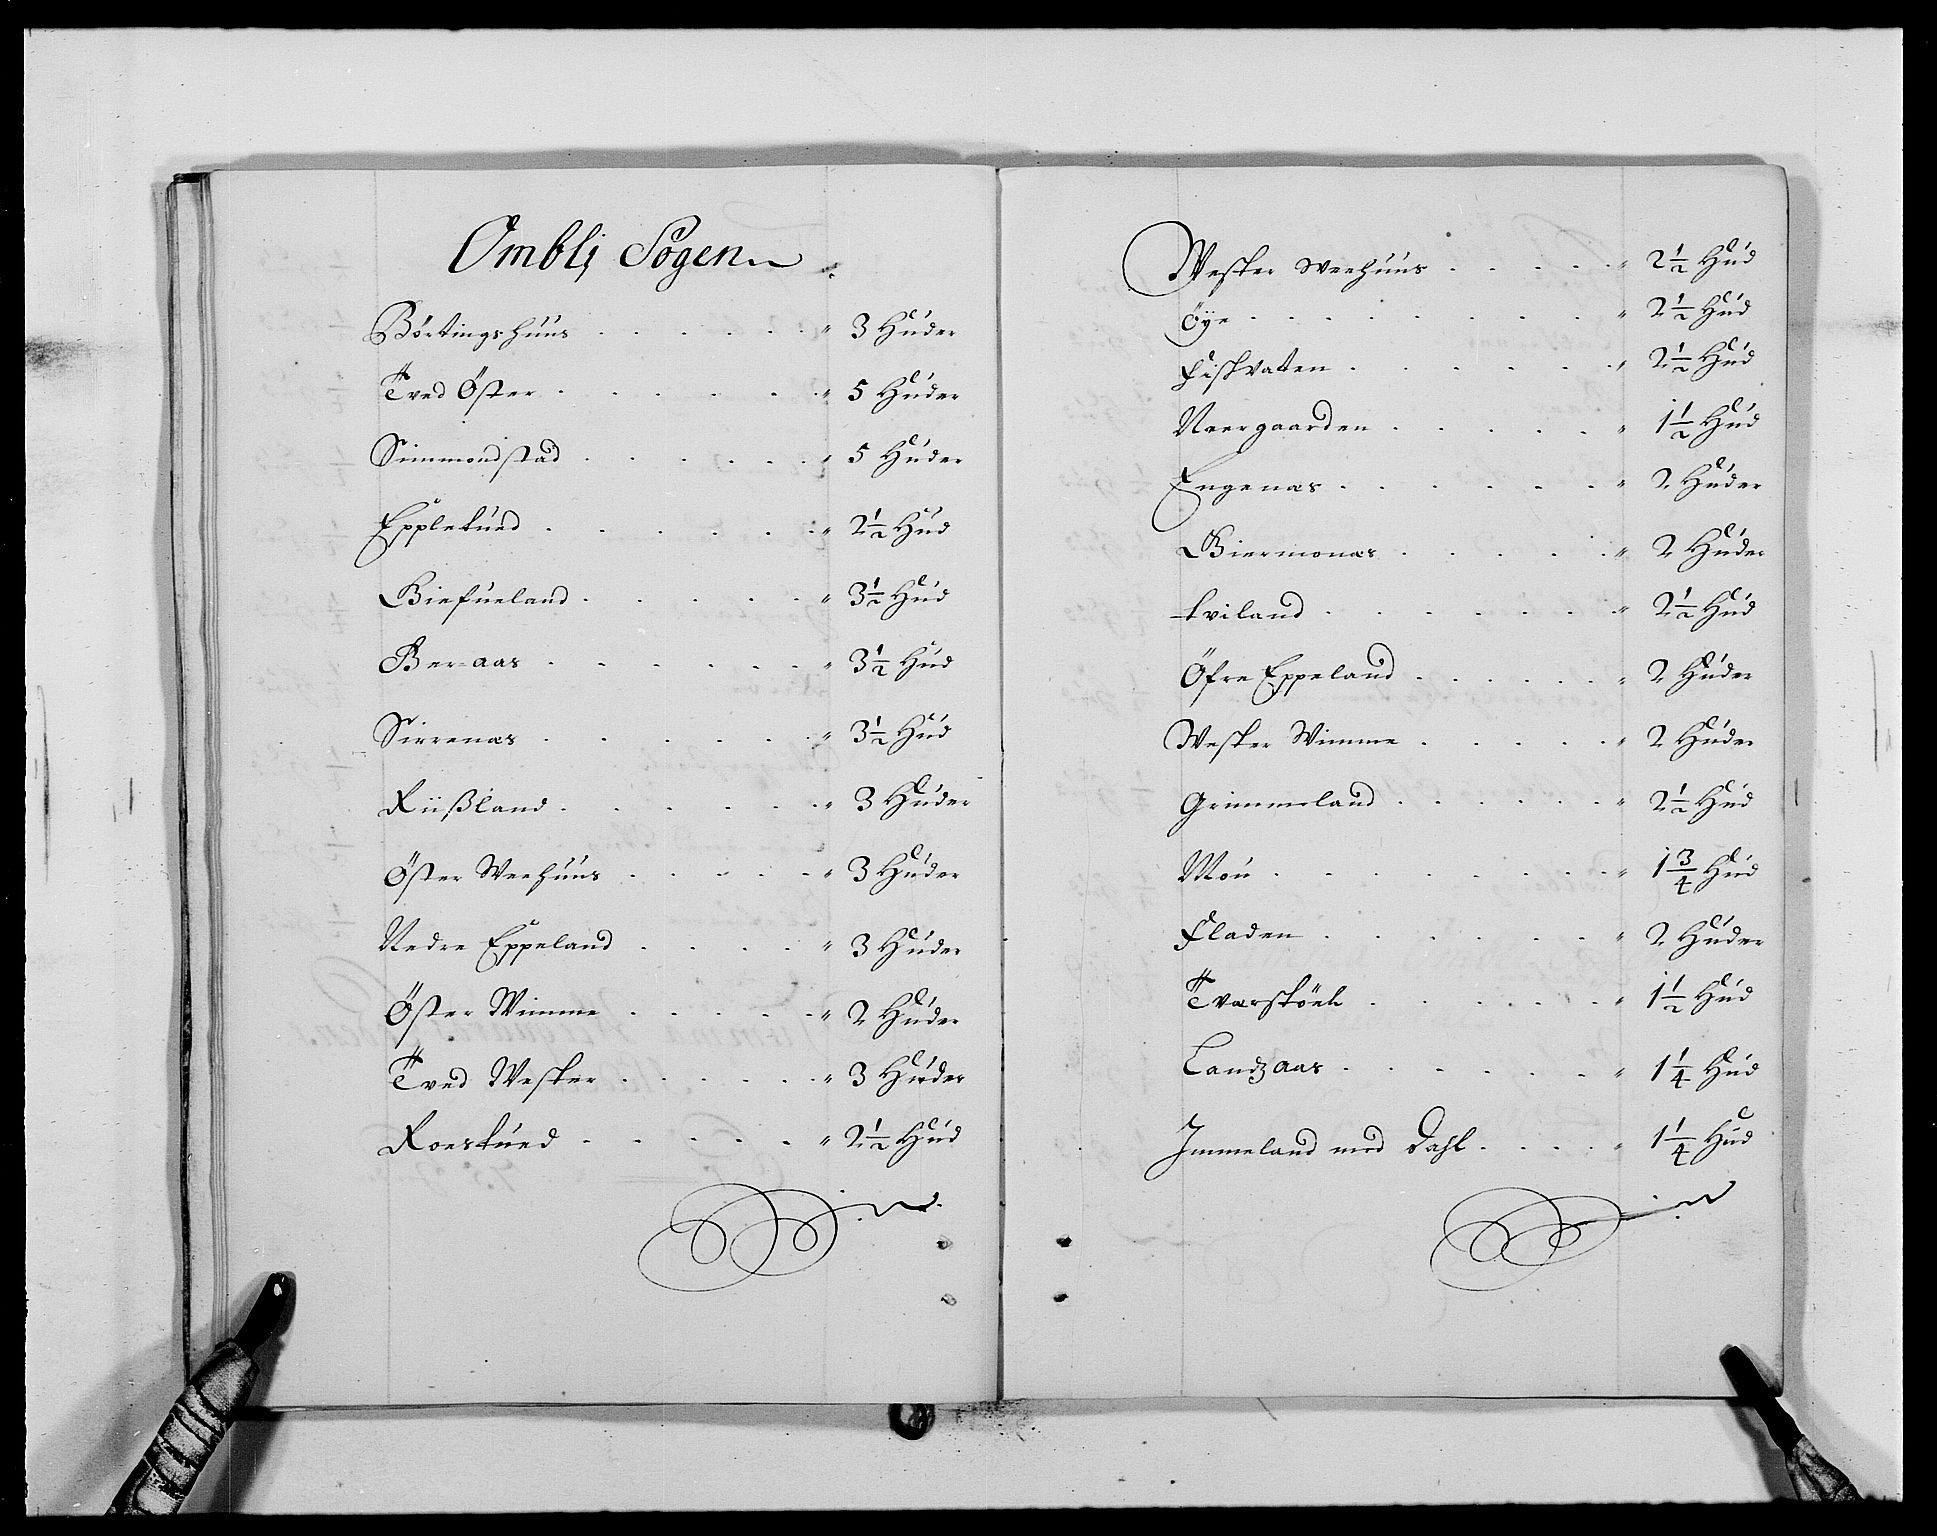 Ombli Sogen
Börtingshuus . . . . . . " 3 Huder
Tved Öster . . . . . . " 5 Huder
Simmondstad . . . . . . " 5 Huder
Epplekued . . . . . . " 2½ Hud
Biefueland . . . . . " 3½ Hud
Ber-aas . . . . . . " 3½ Hud
Sirrenæs . . . . . . " 3½ Hud
Riißland . . . . . . " 3 Huder
Öster Weehuus . . . . . " 3 Huder
Nedre Eppeland . . . . " 3 Huder
Öster Wimme . . . . . " 2 Huder
Tved Wester . . . . . . " 3 Huder
Roeskued . . . . . " 2½ Hud
Wester Weehuus . . . . . " 2½ Hud
Öye . . . . . . . . " 2½ Hud
Fiskvatten . . . . . . " 2½ Hud
Neergaarden . . . . . " 1½ Hud
Engenæs . . . . . . " 2 Huder
Biermonæs . . . . . " 2 Huder
Eviland . . . . . . " 2½ Hud
Öfre Eppeland . . . . . " 2 Huder
Wester Wimme . . . . . " 2 Huder
Grimmeland . . . . . . " 2½ Hud
Mou . . . . . . . . " 1¾ Hud
Fladen . . . . . . " 2 Huder
Tvarskönh . . . . . . " 1½ Hud
Landzaas . . . . . . " 1¼ Hud
Immeland med Dahl . . . . " 1¼ Hud